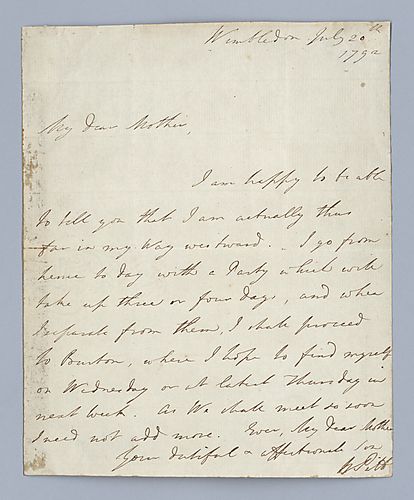 Wimbledon July 20th
1792
My dear Mother,
I am happy to be able
to tell you that I am actually thus
far in my Way westward. _ I go from
hence to day with a Party which will
take up three or four days, and when
I separate from them, I shall proceed
to Burton, where I hope to find myself
on Wednesday or at latest Thursday in
next week. As We shall meet so soon
I need not add more. Ever, My dear Mother
Your dutiful & affectionate Son
W. Pitt